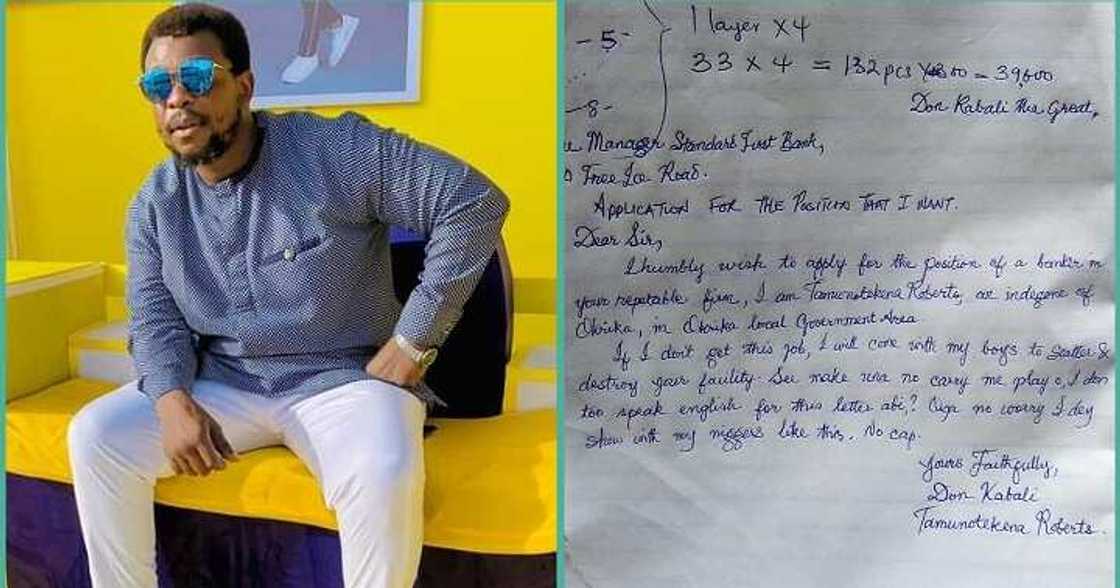 1 layer x 4
-5-
33 x 4 = 132 pcs x 300 = 39,600
-8-
Don Kabali the Great,
Manager Standard First Bank,
Free Ice Road.
APPLICATION FOR THE POSITION THAT I WANT.
Dear Sir,
I humbly wish to apply for the position of a banker in
your reputable firm, I am Tamunotekena Roberts, an indegene of
Okrika, in Okrika Local Government Area
If I don't get this job, I will come with my boys to scatter &
destroy your facility. See make una no carry me play o, I don
too speak english for this letter abi? Oya no worry I dey
show with my niggers like this. No cap.
Yours Faithfully,
Don Kabali
Tamunotekena Roberts.